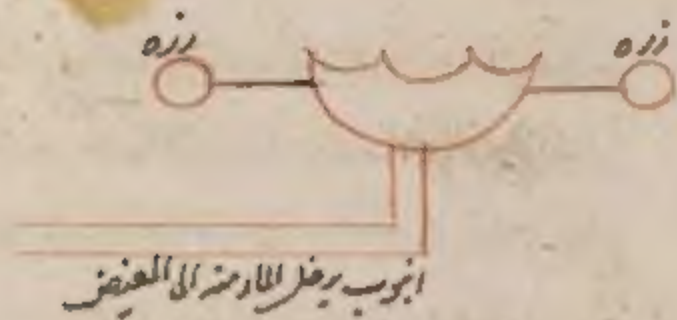 رزه
رزه
انبوب يدخل الماء منه الى المغيض